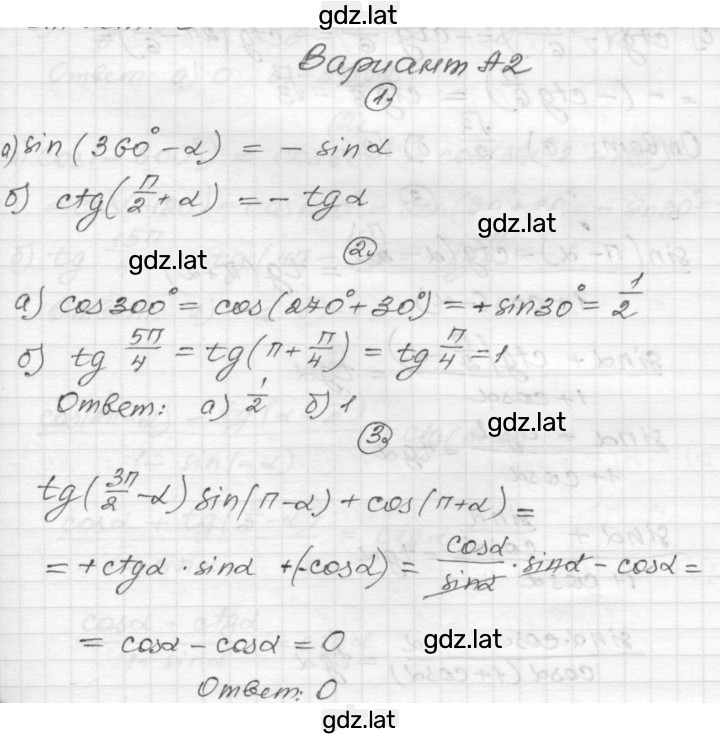 gdz.lat
Вариант А2
1.
а) sin(360°-α) = - sinα
б) ctg(π/2+α) = - tgα
gdz.lat
gdz.lat
2.
а) cos300° = cos(270°+30°) = +sin30° = 1/2
б) tg 5π/4 = tg(π+π/4) = tg π/4 = 1
Ответ: а) 1/2 б) 1
gdz.lat
3.
tg(3π/2-α) sin(π-α) + cos(π+α) =
= +ctgα · sinα +(-cosα) = cosα/sinα · sinα - cosα =
= cosα - cosα = 0
gdz.lat
Ответ: 0
gdz.lat